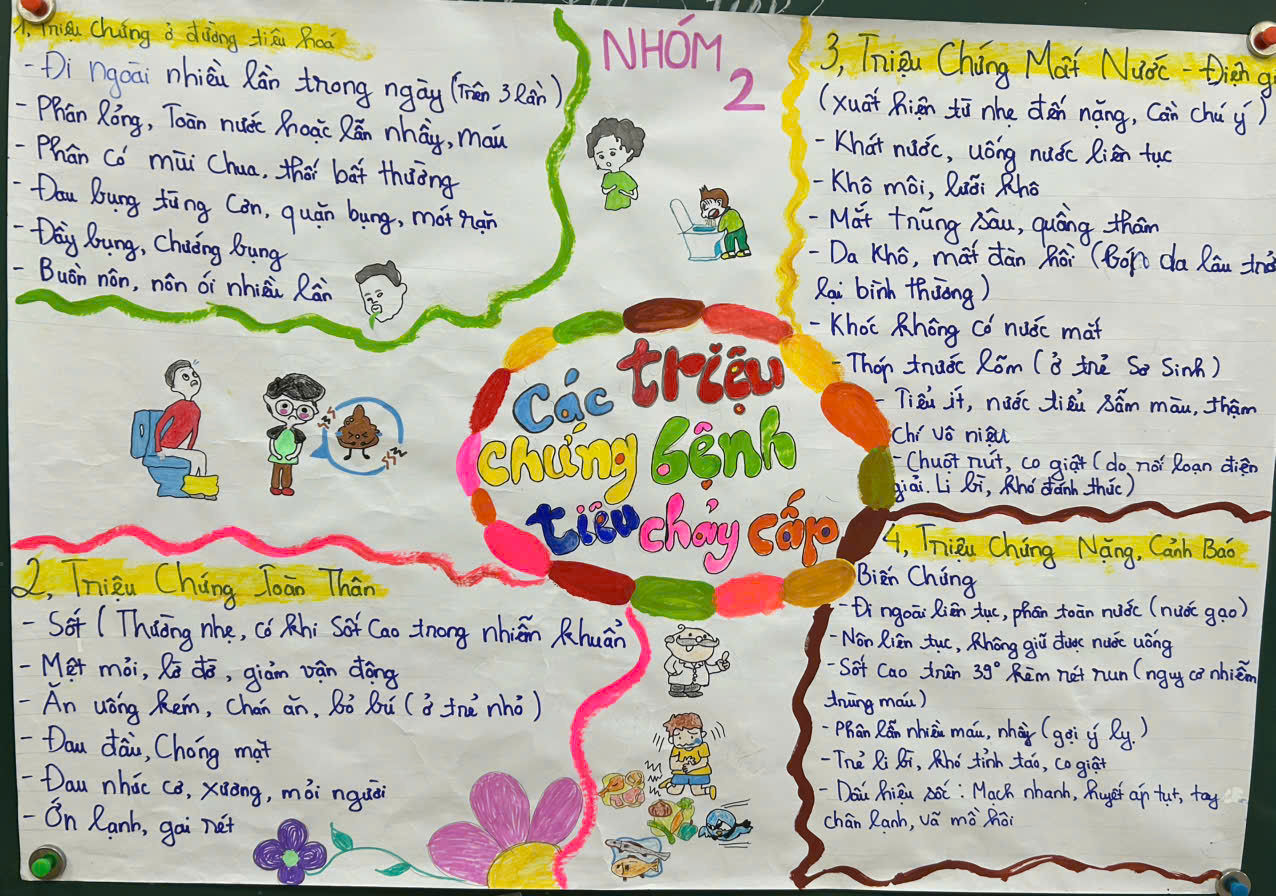 NHÓM 2
Các triệu
chứng bệnh
tiêu chảy cấp
1, Triệu Chứng ở đường tiêu hoá
- Đi ngoài nhiều lần trong ngày (Trên 3 lần)
- Phân lỏng, Toàn nước hoặc lẫn nhầy, máu
- Phân có mùi chua, thối bất thường
- Đau bụng từng cơn, quặn bụng, mót rặn
- Đầy bụng, chướng bụng
- Buồn nôn, nôn ói nhiều lần
2, Triệu Chứng Toàn Thân
- Sốt (Thường nhẹ, có khi sốt cao trong nhiễm khuẩn
- Mệt mỏi, lờ đờ, giảm vận động
- Ăn uống kém, chán ăn, bỏ bú (ở trẻ nhỏ)
- Đau đầu, Chóng mặt
- Đau nhức cơ, xương, mỏi người
- Ớn lạnh, gai rét
3, Triệu Chứng Mất Nước - Điện g
(xuất hiện từ nhẹ đến nặng, Cần chú ý)
- Khát nước, uống nước liên tục
- Khô môi, lưỡi khô
- Mắt trũng sâu, quầng thâm
- Da khô, mất đàn hồi (bóp da lâu trở
lại bình thường)
- Khóc không có nước mắt
- Thóp trước lõm (ở trẻ Sơ Sinh)
- Tiểu ít, nước tiểu sẫm màu, thậm
chí vô niệu
- Chuột rút, co giật (do rối loạn điện
giải. Li bì, khó đánh thức)
4, Triệu Chứng Nặng, Cảnh Báo
Biến Chứng
- Đi ngoài liên tục, phân toàn nước (nước gạo)
- Nôn liên tục, không giữ được nước uống
- Sốt cao trên 39° kèm rét run (nguy cơ nhiễm
trùng máu)
- Phân lẫn nhiều máu, nhầy (gợi ý lỵ.)
- Trẻ li bì, khó tỉnh táo, co giật
- Dấu hiệu sốc: Mạch nhanh, huyết áp tụt, tay
chân lạnh, vã mồ hôi